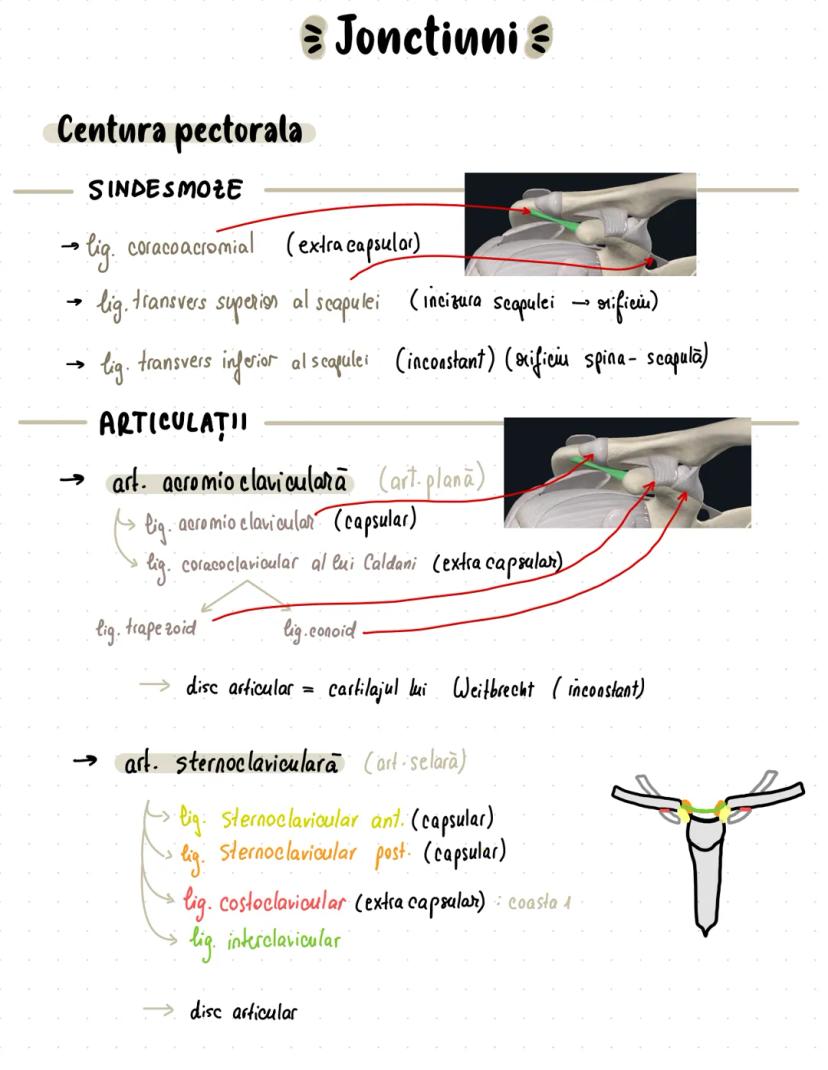 Jonctiuni
Centura pectorala
SINDESMOZE
→ lig. coracoacromial (extracapsular)
→ lig. transvers superior al scapulei (incizura scapulei → orificiu)
→ lig. transvers inferior al scapulei (inconstant) (orificiu spina - scapulă)
ARTICULAȚII
→ art. acromioclaviculară (art. plană)
lig. acromioclavicular (capsular)
lig. coracoclavicular al lui Caldani (extracapsular)
lig. trapezoid lig. conoid
→ disc articular = cartilajul lui Weitbrecht (inconstant)
→ art. sternoclaviculară (art. selară)
lig. sternoclavicular ant. (capsular)
lig. sternoclavicular post. (capsular)
lig. costoclavicular (extracapsular) : coasta 1
lig. interclavicular
→ disc articular